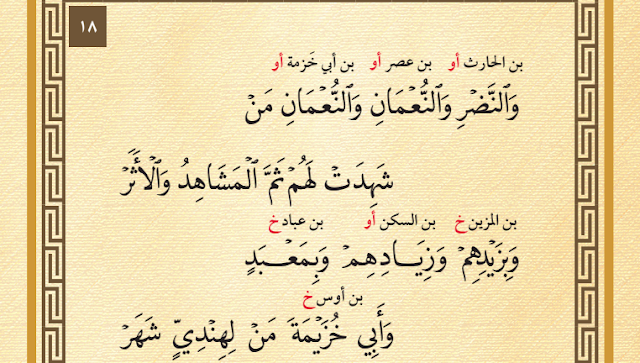 ١٨
بن الحارث أو بن عصر أو بن أبي خَزمة أو
وَالنَّضْرِ وَالنُّعْمَانِ وَالنُّعْمَانِ مَنْ
شَهِدَتْ لَهُمْ ثَمَّ الْمَشَاهِدُ وَالْأَثَرْ
بن المزين خ بن السكن أو بن عباد خ
وَبِزَيْدِهِمْ وَزِيَادِهِمْ وَبِمَعْبَدٍ
بن أوس خ
وَأَبِي خُزَيْمَةَ مَنْ لِهِنْدِيٍّ شَهَرْ